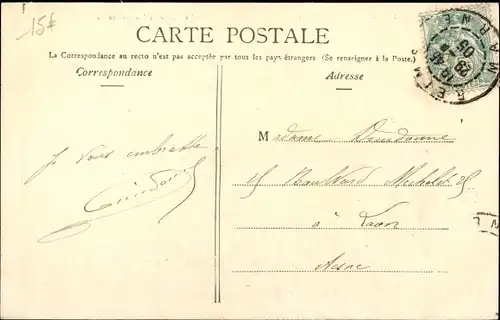 15f
CARTE POSTALE
La Correspondance au recto n'est pas acceptée par tous les pays étrangers (Se renseigner à la Poste.)
Correspondance
Adresse
REIMS
MARNE
Madame Dieudonné
25 Boulevard Michelet 25
Je vous embrasse
à Laon
Aisne